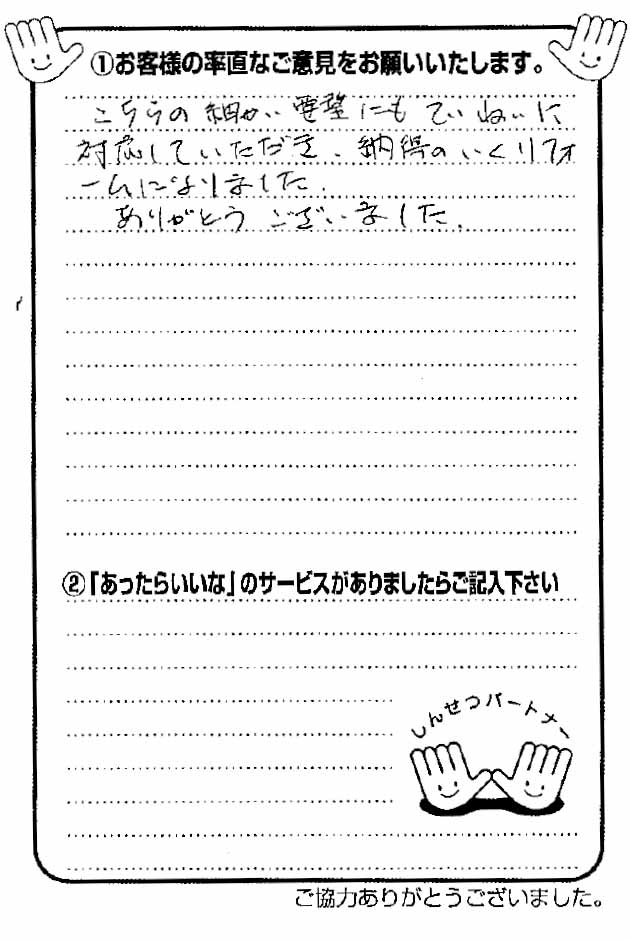 ①お客様の率直なご意見をお願いいたします。
こちらの細かい要望にもていねいに
対応していただき、納得のいくリフォ
ームになりました.
ありがとうございました.
②「あったらいいな」のサービスがありましたらご記入下さい
しんせつパートナー
ご協力ありがとうございました。